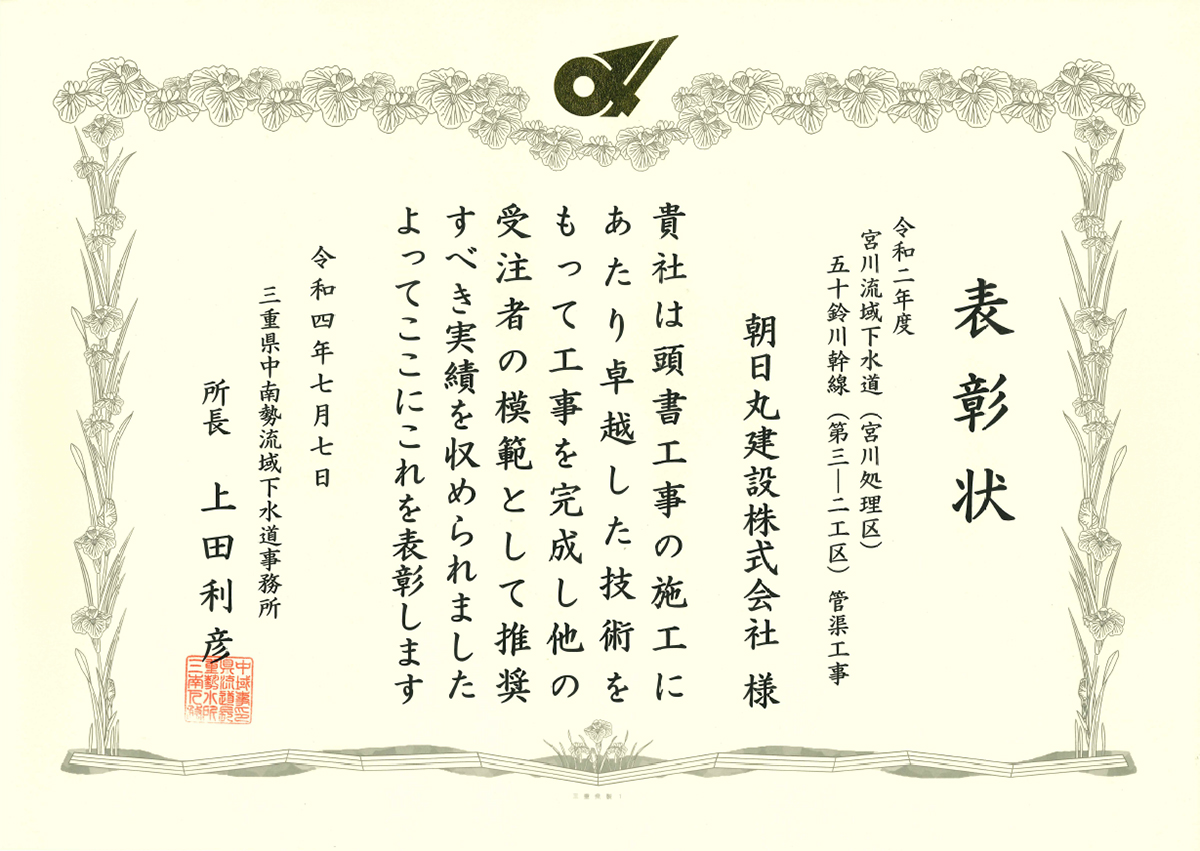 表彰状
令和二年度
宮川流域下水道（宮川処理区）
五十鈴川幹線（第三―二工区）管渠工事
朝日丸建設株式会社 様
貴社は頭書工事の施工に
あたり卓越した技術を
もって工事を完成し他の
受注者の模範として推奨
すべき実績を収められました
よってここにこれを表彰します
令和四年七月七日
三重県中南勢流域下水道事務所
所長 上田利彦